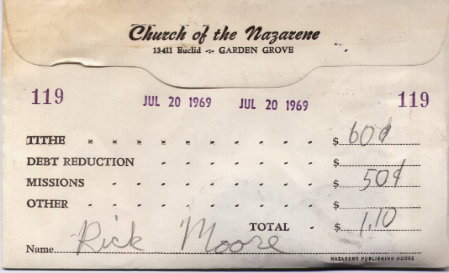 Church of the Nazarene
13411 Euclid -:- GARDEN GROVE
119 JUL 20 1969 JUL 20 1969 119
TITHE - - - - - - - - - - $ 60¢
DEBT REDUCTION - - - - - - - $
MISSIONS - - - - - - - - - $ 50¢
OTHER - - - - - - - - - - $
TOTAL - $ 1.10
Name Rick Moore
NAZARENE PUBLISHING HOUSE